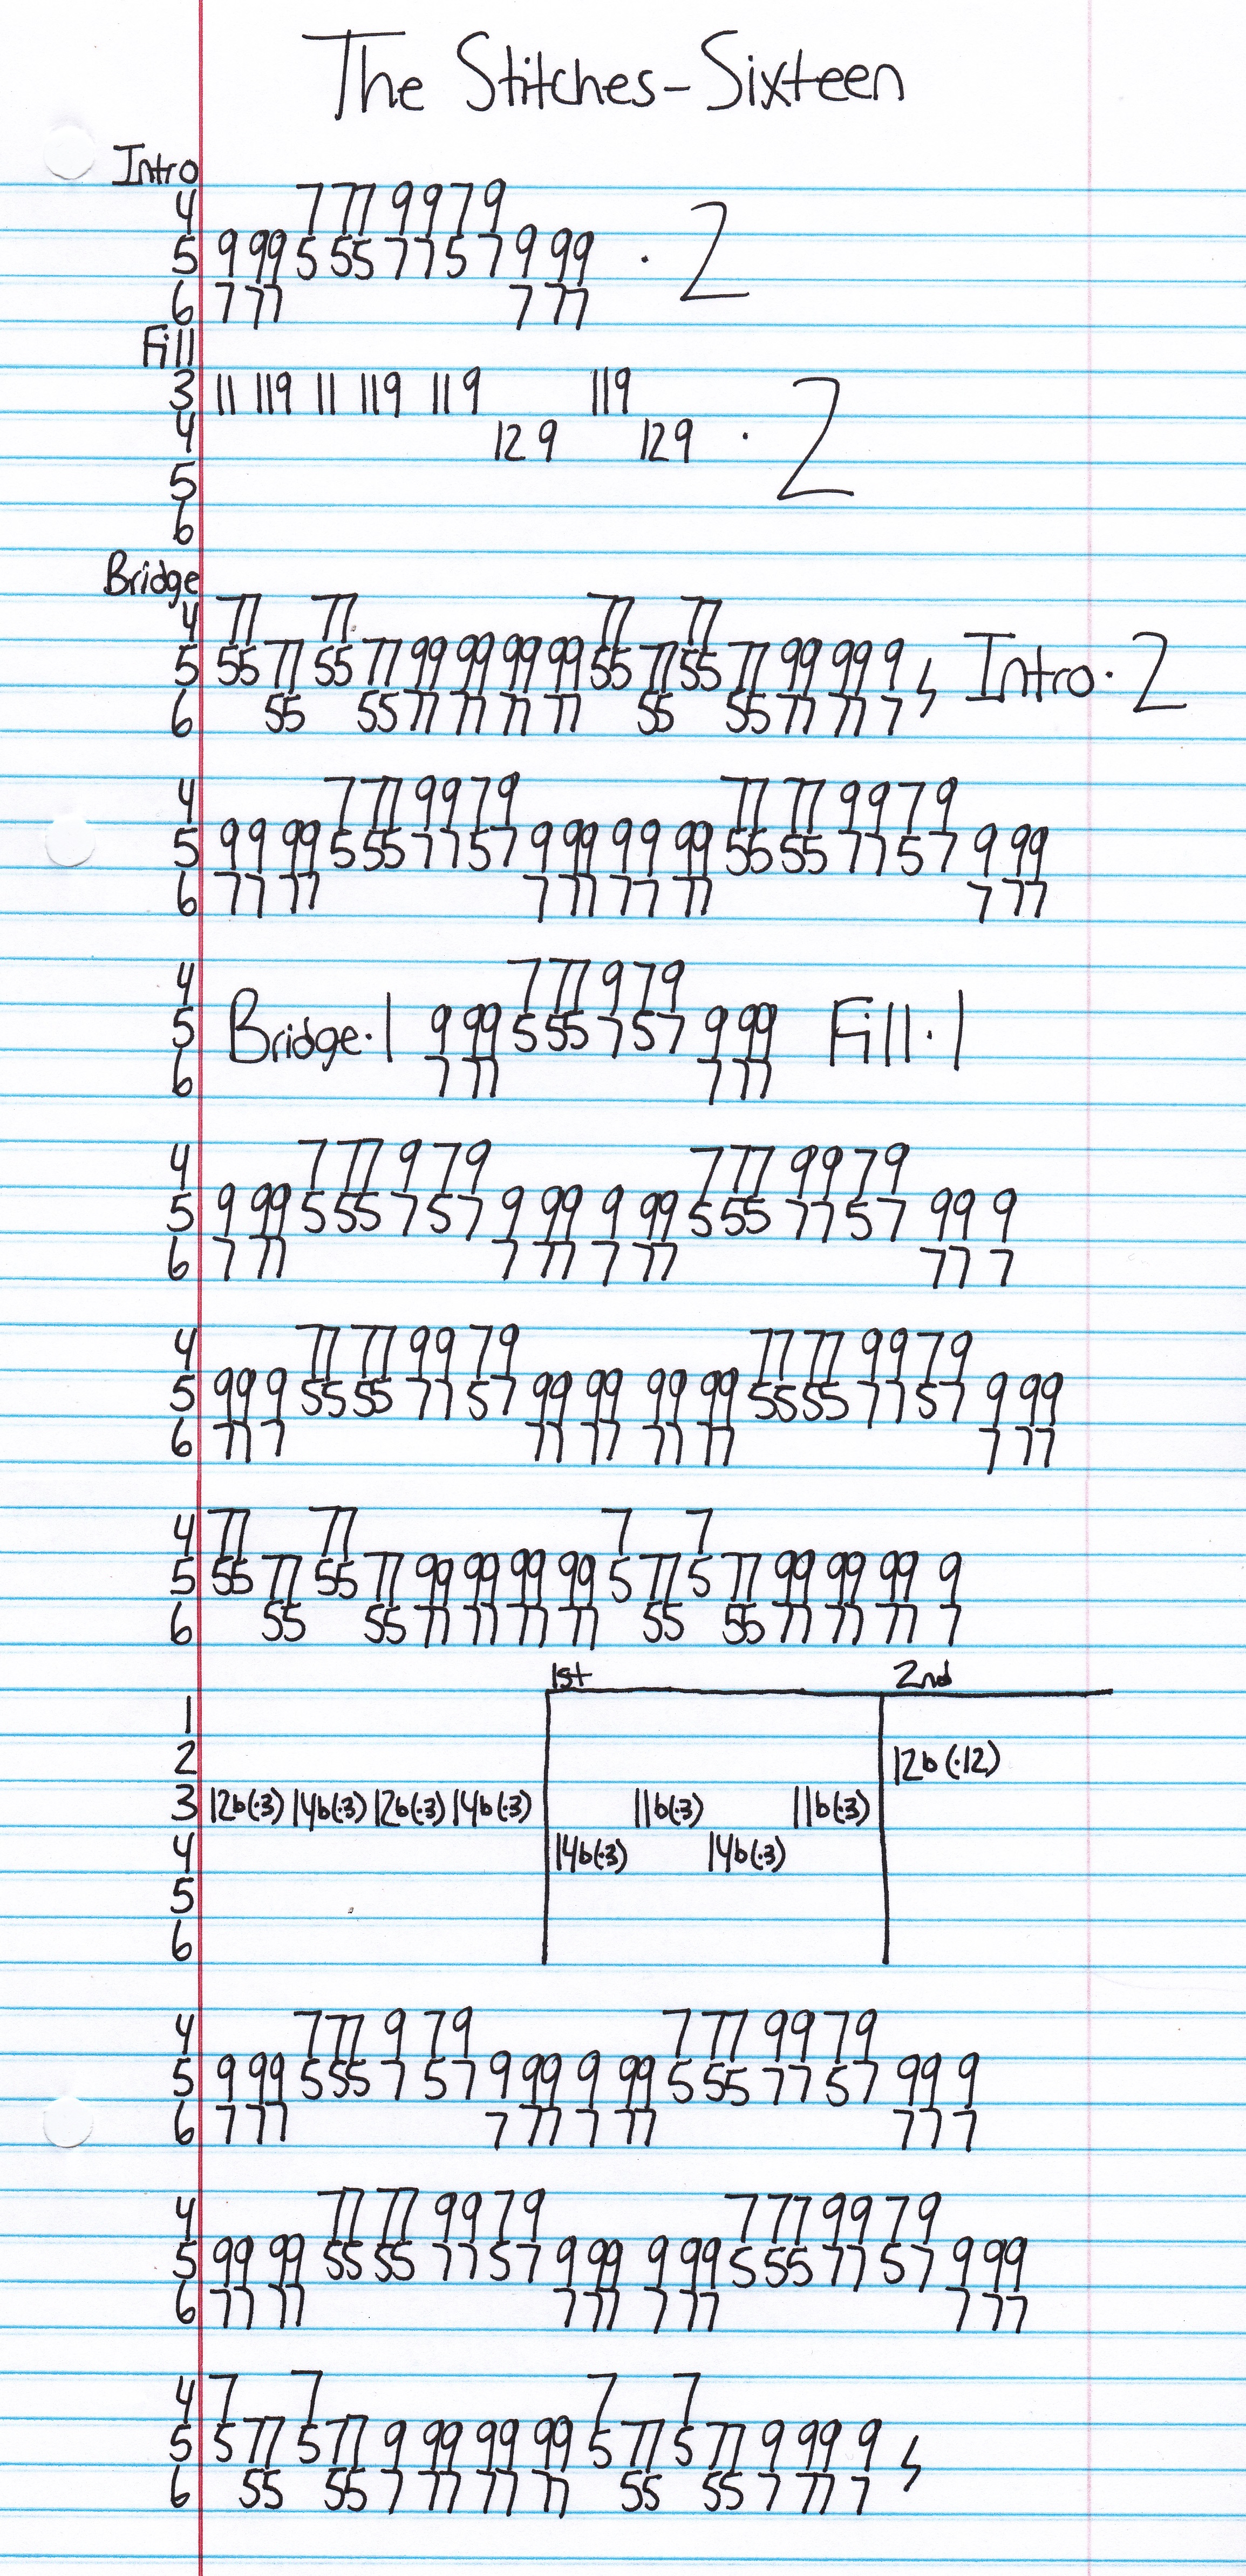 The Stitches-Sixteen
Intro
4 7 77 9 9 7 9
5 9 99 5 55 7 7 5 7 9 99 · 2
6 7 77 7 77
Fill
3 11 119 11 119 11 9 119
4 12 9 129 · 2
5
6
Bridge
4 77 77 77 77
5 55 77 55 77 99 99 99 99 55 77 55 77 99 99 9 Intro · 2
6 55 55 77 77 77 77 55 55 77 77 7
4 7 77 99 79 77 77 9 9 7 9
5 99 99 5 55 77 57 9 99 99 99 55 55 77 57 9 99
6 77 77 7 77 77 77 7 77
4 7 77 9 79
5 Bridge·1 9 99 5 55 7 57 9 99 Fill·1
6 7 77 7 77
4 7 77 9 79 7 77 99 79
5 9 99 5 55 7 57 9 99 9 99 5 55 77 57 99 9
6 7 77 7 77 7 77 77 7
4 77 77 99 79 77 77 99 79
5 99 9 55 55 77 57 99 99 99 99 55 55 77 57 9 99
6 77 7 77 77 77 77 7 77
4 77 77 7 7
5 55 77 55 77 99 99 99 99 5 77 5 77 99 99 99 9
6 55 55 77 77 77 77 55 55 77 77 77 7
1st 2nd
1
2 12b(·12)
3 12b(·3) 14b(·3) 12b(·3) 14b(·3) 11b(·3) 11b(·3)
4 14b(·3) 14b(·3)
5
6
4 7 77 9 79 7 77 99 79
5 9 99 5 55 7 57 9 99 9 99 5 55 77 57 99 9
6 7 77 7 77 7 77 77 7
4 77 77 99 79 7 77 99 79
5 99 99 55 55 77 57 9 99 9 99 5 55 77 57 9 99
6 77 77 7 77 7 77 7 77
4 7 7 7 7
5 5 77 5 77 9 99 99 99 5 77 5 77 9 99 9
6 55 55 7 77 77 77 55 55 7 77 7